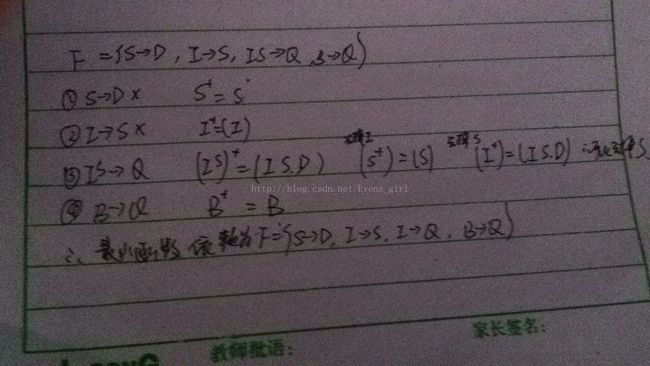 F = {S→D, I→S, IS→Q, B→Q}
① S→D × S⁺=S
② I→S × I⁺=(I)
③ IS→Q (IS)⁺=(IS.D) 去掉I (S⁺)=(S) 去掉S (I⁺)=(IS.D)
http://blog.csdn.net/Evens_girl
④ B→Q B⁺=B
∴ 最小函数依赖为F={S→D, I→S, I→Q, B→Q}
教师批语: 家长签名: